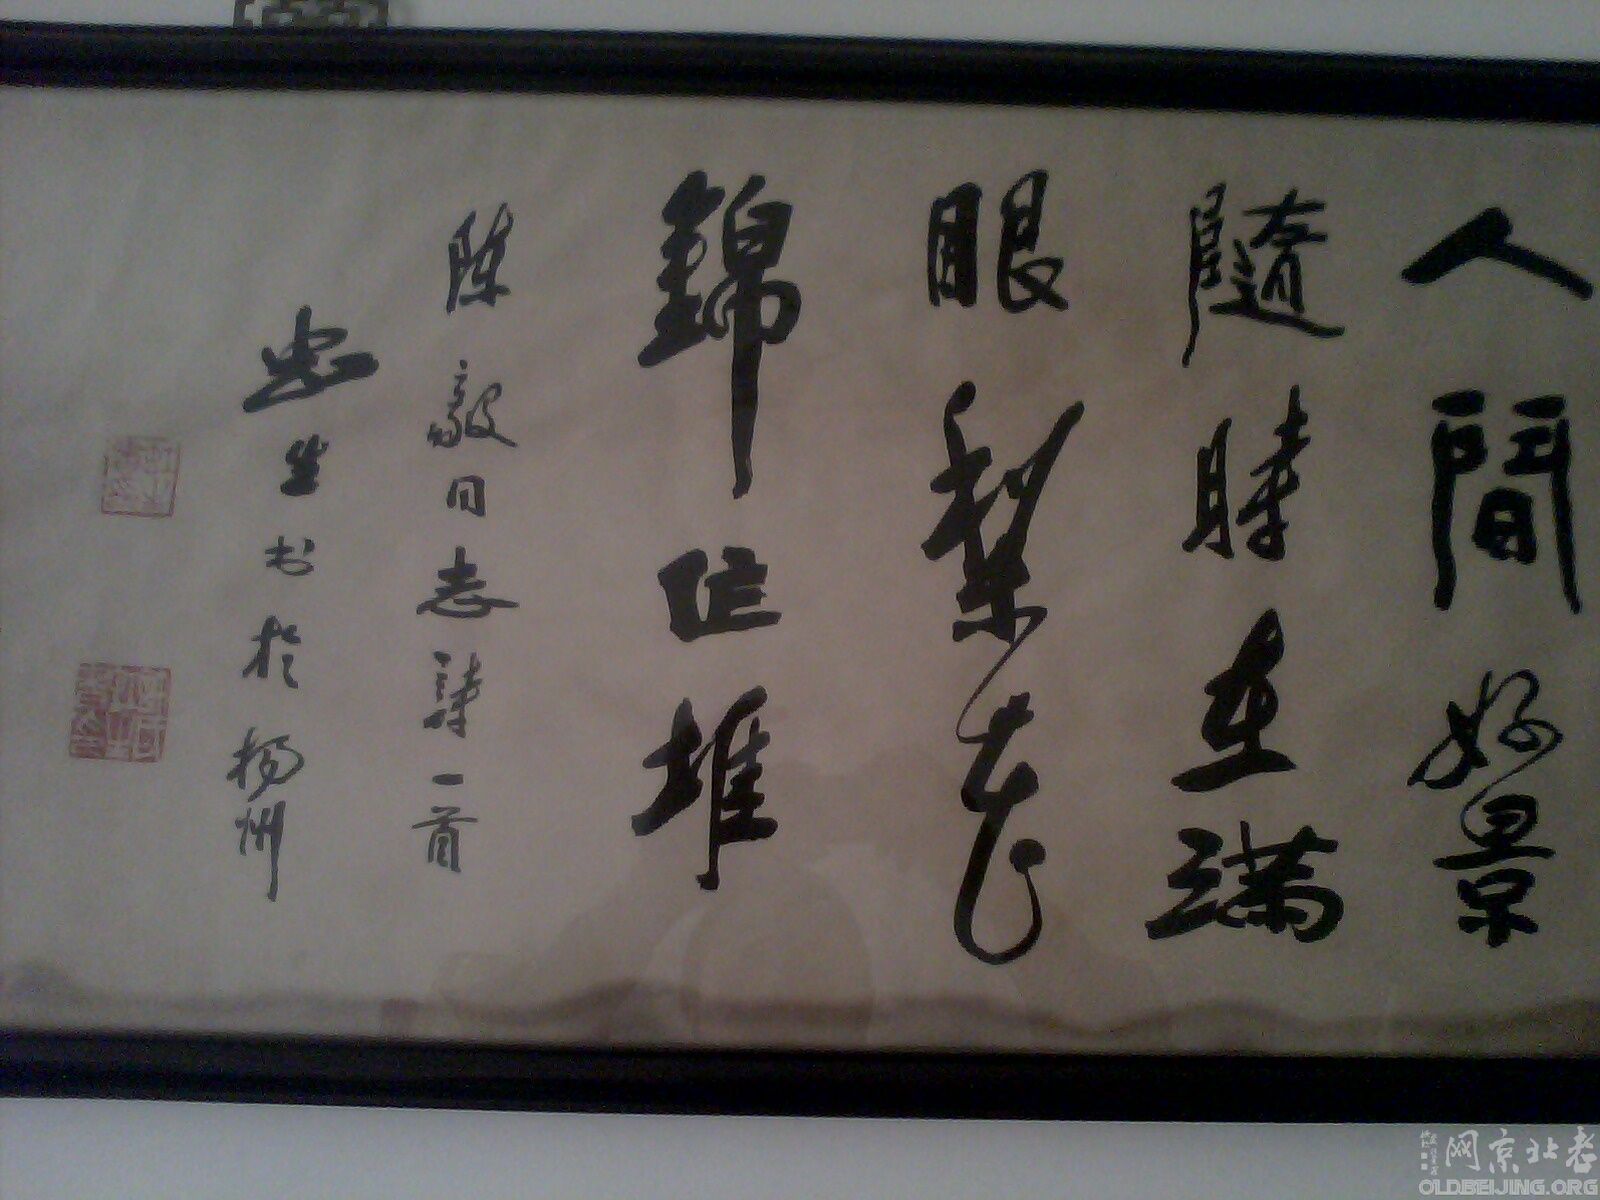 人間好景
隨時在滿
眼梨花
錦作堆
陈毅同志詩一首
忠生书於扬州
老北京网
OLDBEIJING.ORG